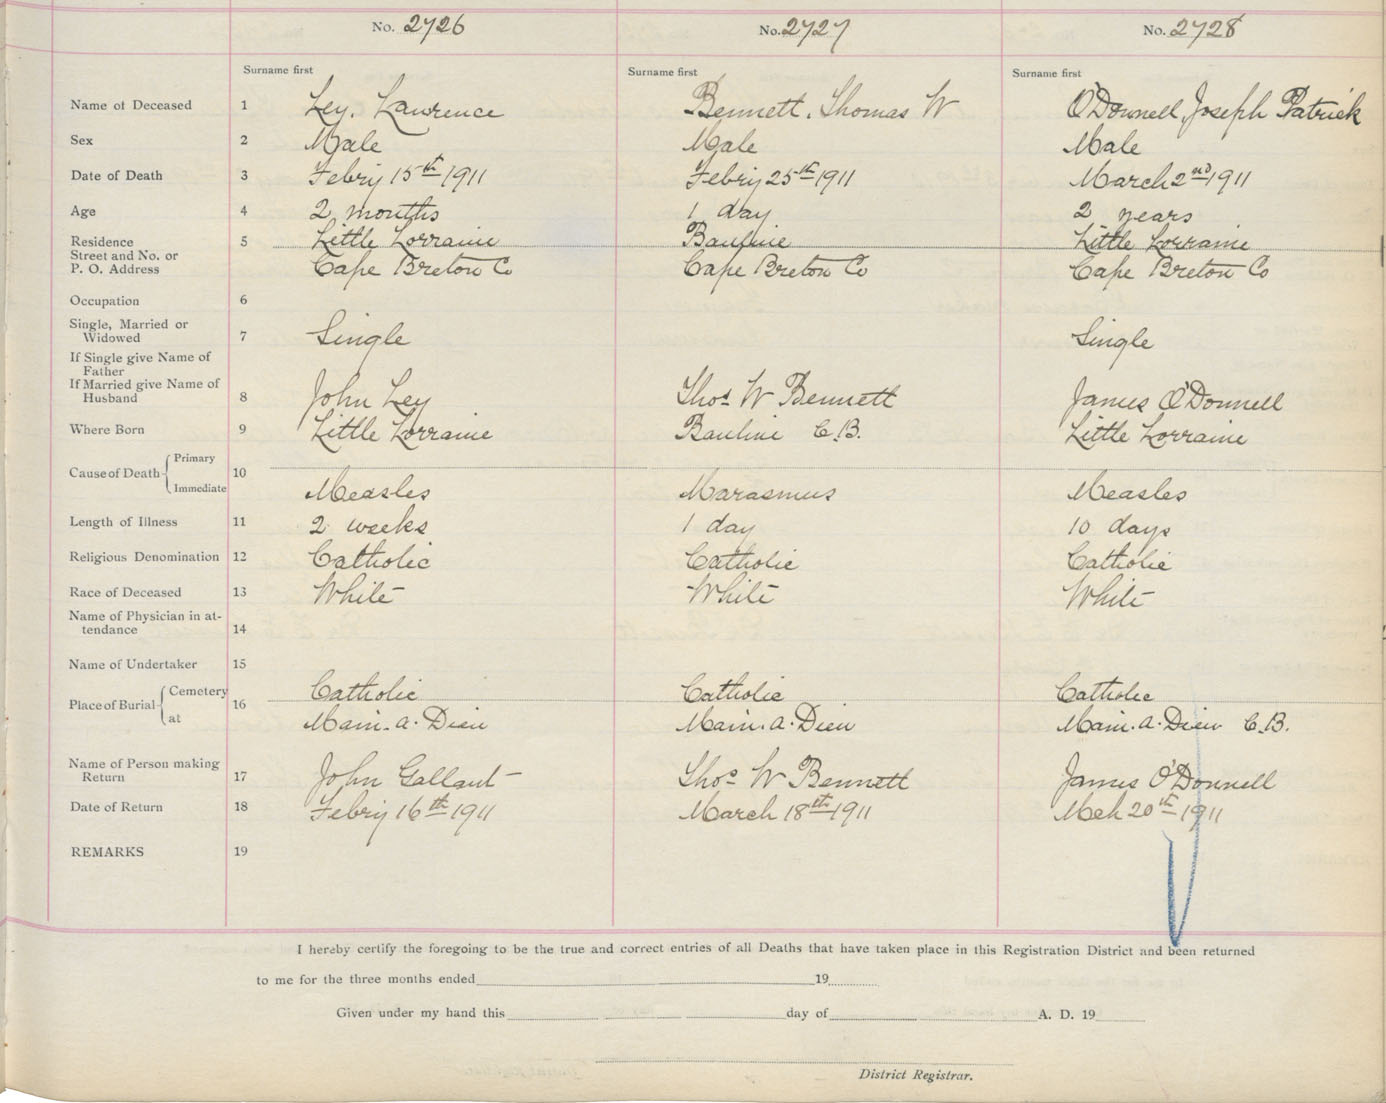 No. 2726 No. 2727 No. 2728
Surname first Surname first Surname first
Name of Deceased 1 Ley. Lawrence Bennett. Thomas W O'Donnell, Joseph Patrick
Sex 2 Male Male Male
Date of Death 3 Febry 15th 1911 Febry 25th 1911 March 2nd 1911
Age 4 2 months 1 day 2 years
Residence 5 Little Lorraine Bauline Little Lorraine
Street and No. or
P. O. Address Cape Breton Co Cape Breton Co Cape Breton Co
Occupation 6
Single, Married or
Widowed 7 Single Single
If Single give Name of
Father
If Married give Name of
Husband 8 John Ley Thos W Bennett James O'Donnell
Where Born 9 Little Lorraine Bauline C.B. Little Lorraine
Cause of Death Primary 10
Immediate Measles Marasmus Measles
Length of Illness 11 2 weeks 1 day 10 days
Religious Denomination 12 Catholic Catholic Catholic
Race of Deceased 13 White White White
Name of Physician in at-
tendance 14
Name of Undertaker 15
Place of Burial Cemetery 16 Catholic Catholic Catholic
at Main. a. Dieu Main. a. Dieu Main. a. Dieu C.B.
Name of Person making
Return 17 John Gallant Thos W Bennett James O'Donnell
Date of Return 18 Febry 16th 1911 March 18th 1911 Mch 20th 1911
REMARKS 19
I hereby certify the foregoing to be the true and correct entries of all Deaths that have taken place in this Registration District and been returned
to me for the three months ended 19
Given under my hand this day of A. D. 19
District Registrar.